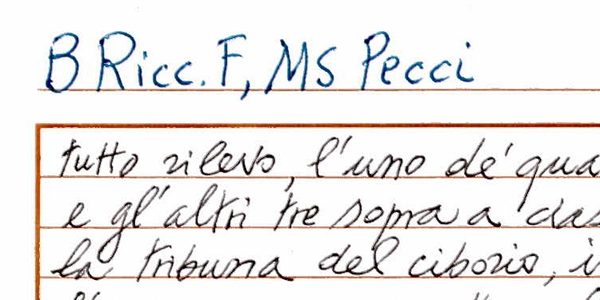 B Ricc. F, Ms Pecci
tutto rilevo, l'uno de' qua
e gl'altri tre sopra a cias
la tribuna del ciborio, i